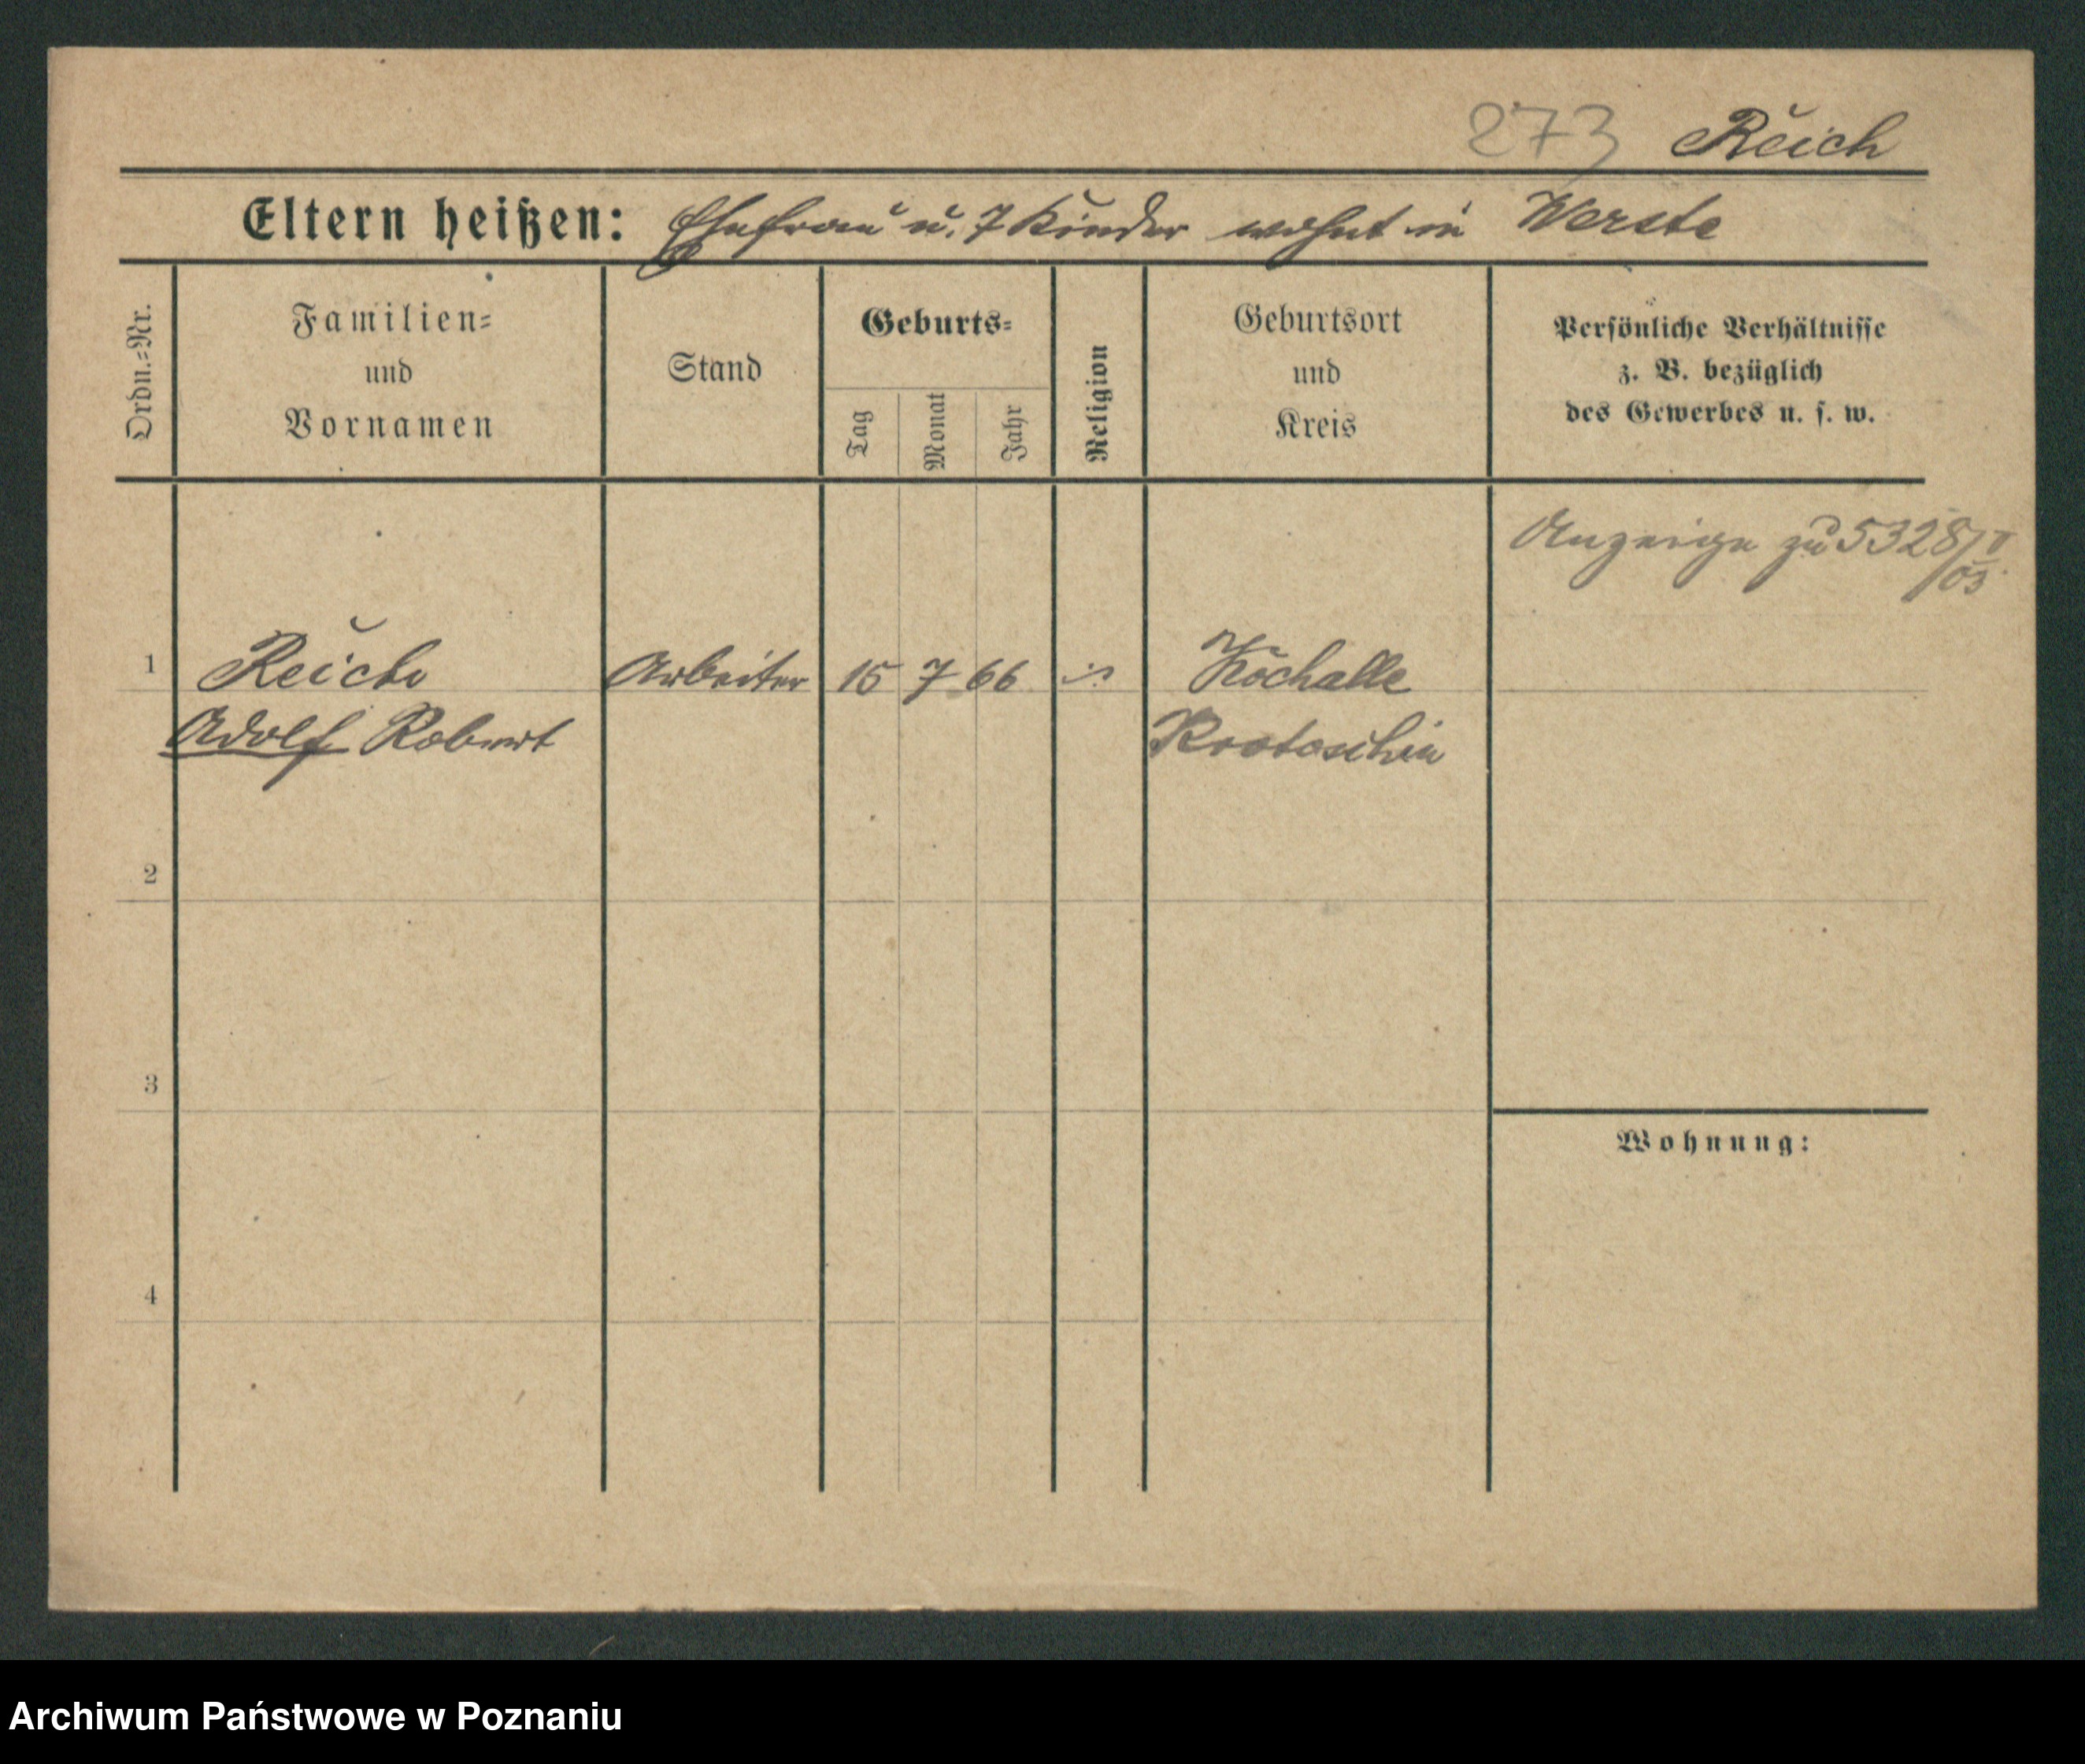 273 Reich
Eltern heißen: Ehefrau u. 7 Kinder wohnt in Werste
Ordn.=Nr.
Familien=
und
Vornamen
Stand
Geburts=
Tag
Monat
Jahr
Religion
Geburtsort
und
Kreis
Persönliche Verhältnisse
z. B. bezüglich
des Gewerbes u. s. w.
Anzeige zu 5328/V
03.
1 Reich Arbeiter 15 7 66 Kochalle
Adolf Robert Krotoschin
2
3
Wohnung:
4
Archiwum Państwowe w Poznaniu